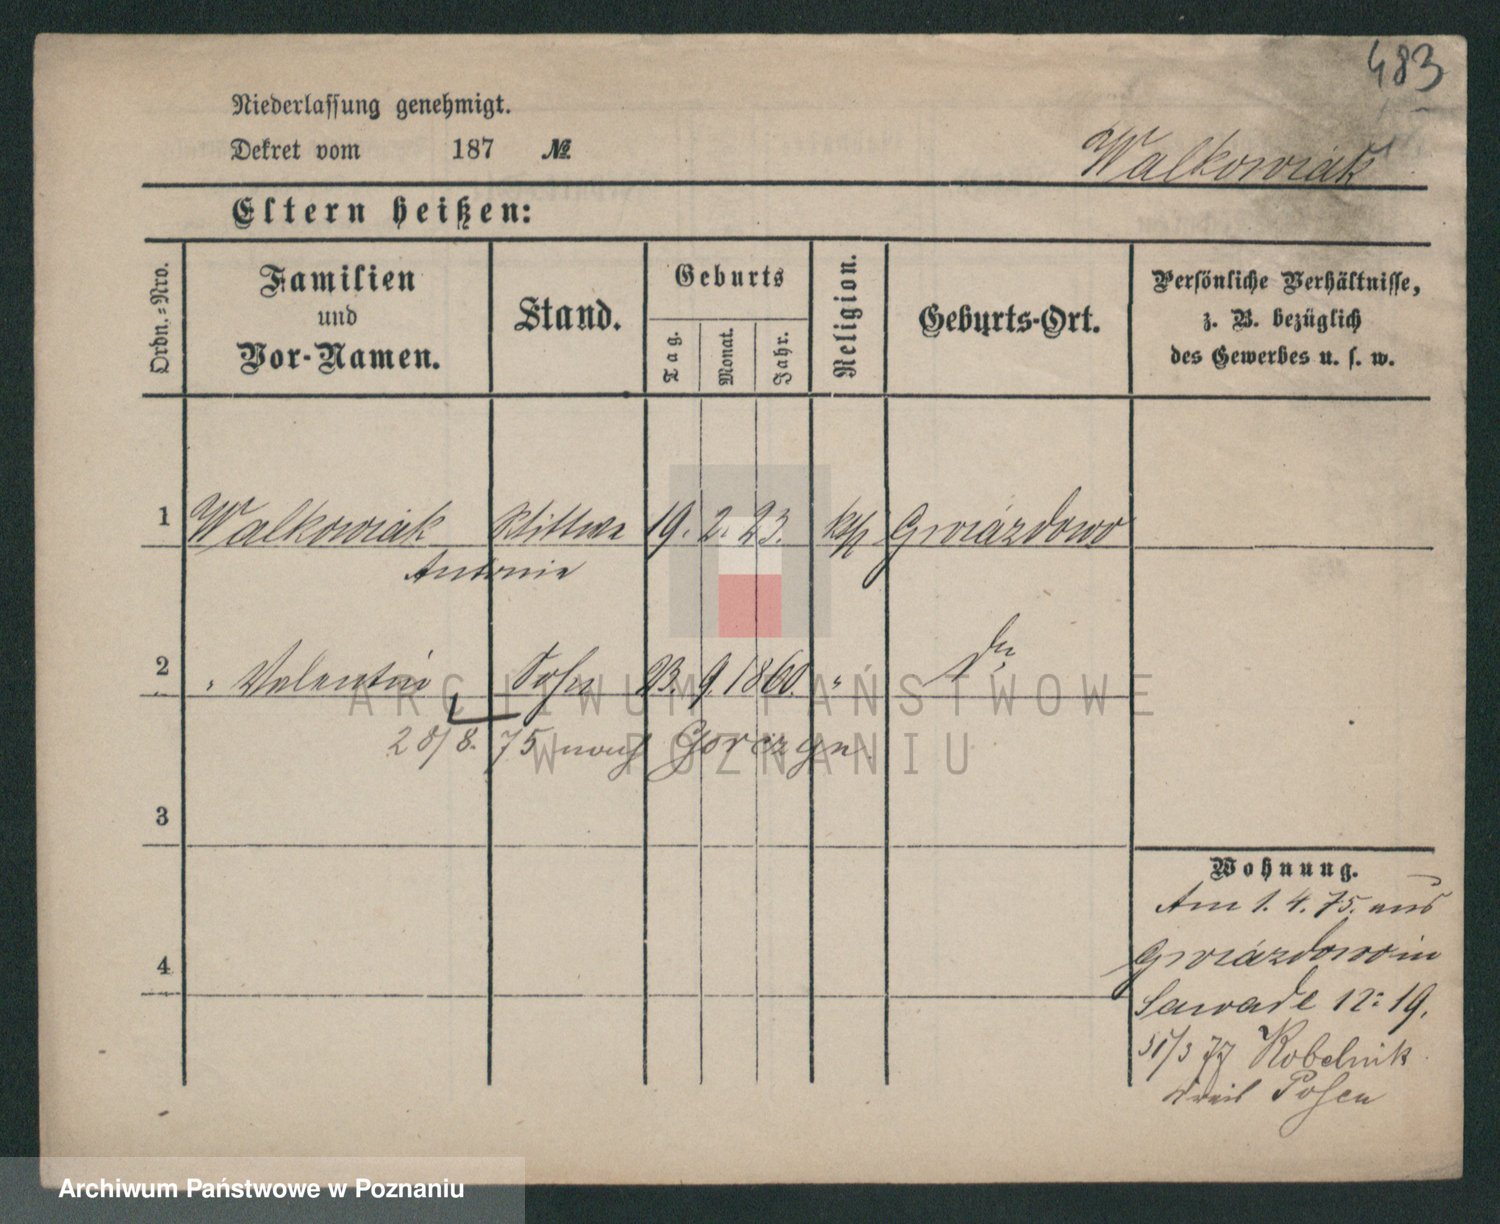 483
Niederlassung genehmigt.
Dekret vom 187 №
Walkowiak
Eltern heißen:
Ordn.-Nro.
Familien
und
Vor-Namen.
Stand.
Geburts
Tag.
Monat.
Jahr.
Religion.
Geburts-Ort.
Persönliche Verhältnisse,
z. B. bezüglich
des Gewerbes u. s. w.
1 Walkowiak Wittwe 19. 2. 23. kth Gwiazdowo
Antonie
2 " Valentin Sohn 23. 9. 1860. " do
28/8. 75 nach Gorczyn
3
4
Wohnung.
Am 1. 4. 75. aus
Gwiazdowo in
Sawade 12: 19.
31/3 77 Kobelnik
Kreis Posen
ARCHIWUM PAŃSTWOWE
W POZNANIU
Archiwum Państwowe w Poznaniu